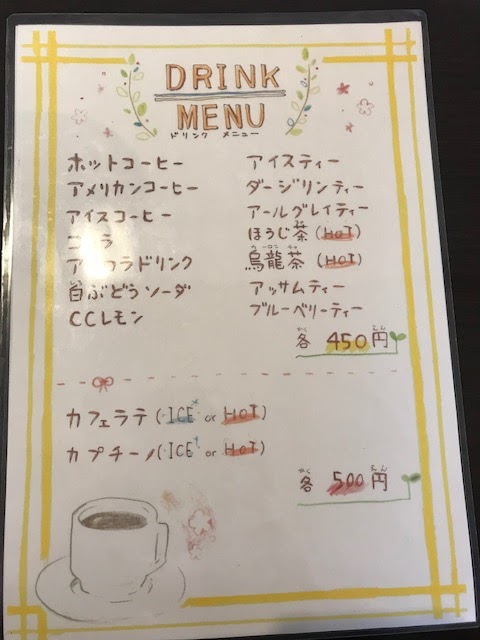 DRINK
MENU
ドリンク メニュー
ホットコーヒー
アメリカンコーヒー
アイスコーヒー
ラ
ラドリンク
白ぶどうソーダ
CCレモン
アイスティー
ダージリンティー
アールグレイティー
ほうじ茶 (HOT)
烏龍茶 (HOT)
アッサムティー
ブルーベリーティー
各 450円
カフェラテ (ICE or HOT)
カプチーノ (ICE or HOT)
各 500円